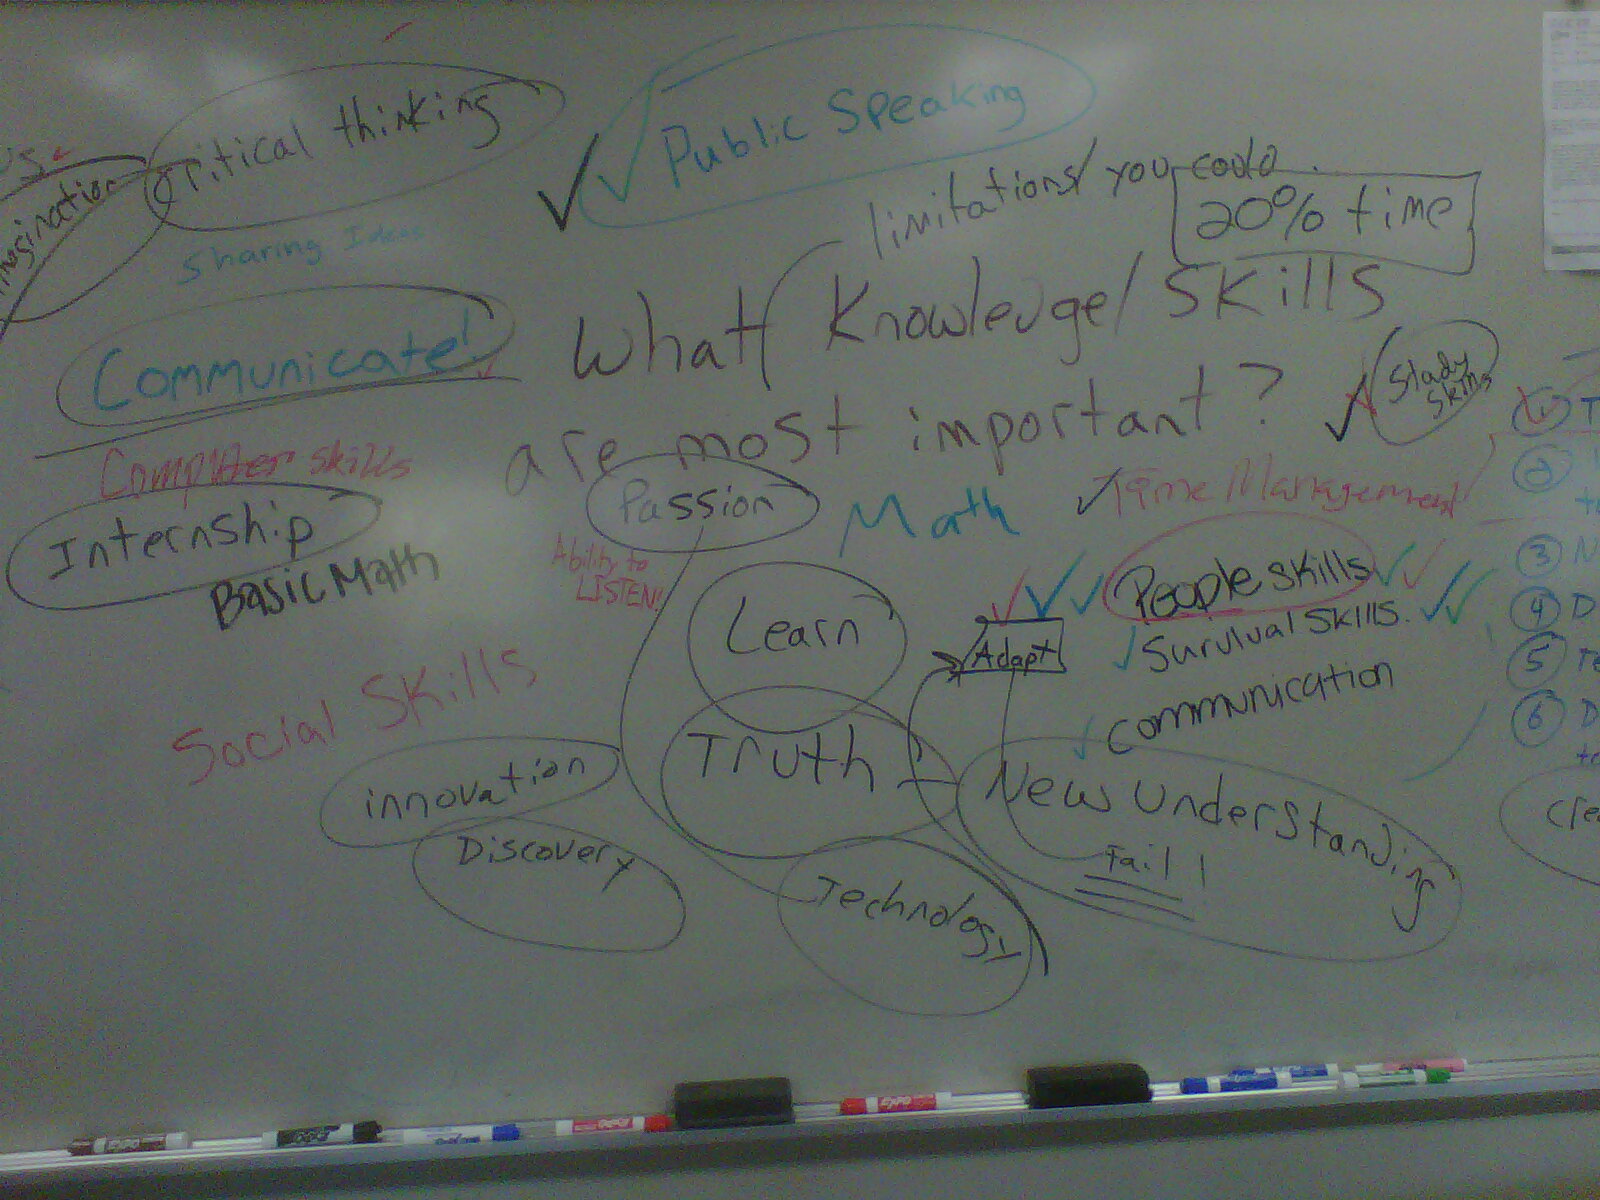 Critical thinking
Public Speaking
imagination
Sharing Ideas
limitations/ you could
20% time
Communicate!
What Knowledge/Skills
are most important?
Study
Skills
Computer skills
Internship
Basic Math
Passion
Math
Time Management
Ability to
LISTEN!
Learn
People skills
Adapt
Survival Skills.
communication
Social Skills
Truth
New Understanding
Fail!
innovation
Discovery
Technology
1
2
3
4 D
5 Te
6 D
Crea
EXPO
EXPO
EXPO
EXPO